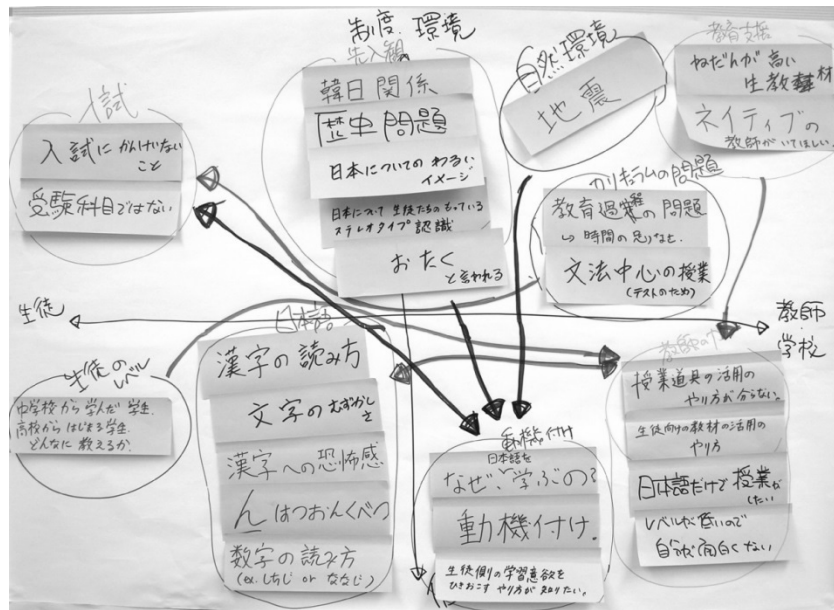 制度・環境
先入観
韓日関係
歴史問題
日本についての わるい
イメージ
日本について 生徒たちのもっている
ステレオタイプ 認識
おたく
と言われる
自然環境
地震
教育支援
ねだんが 高い
生教材
ネイティブの
教師がいてほしい。
入試
入試に かんけいない
こと
受験科目ではない
カリキュラムの問題
教育過程の問題
↳ 時間の足りなさ.
文法中心の授業
(テストのため)
生徒
教師・
学校
生徒の
レベル
中学校から学んだ 学生.
高校から はじまる 学生.
どんなに 教えるか.
日本語
漢字の読み方
文字の むずかし
さ
漢字への恐怖感
ん はつおんくべつ
数字の読み方
(ex. しちじ or ななじ)
動機付け
日本語を
なぜ、学ぶの?
動機付け.
生徒側の学習意欲を
ひきおこす やり方が 知りたい.
教師の
授業道具の活用の
やり方が分らない。
生徒向けの教材の活用の
やり方
日本語だけで 授業が
したい
レベルが 低いので
自分が面白くない